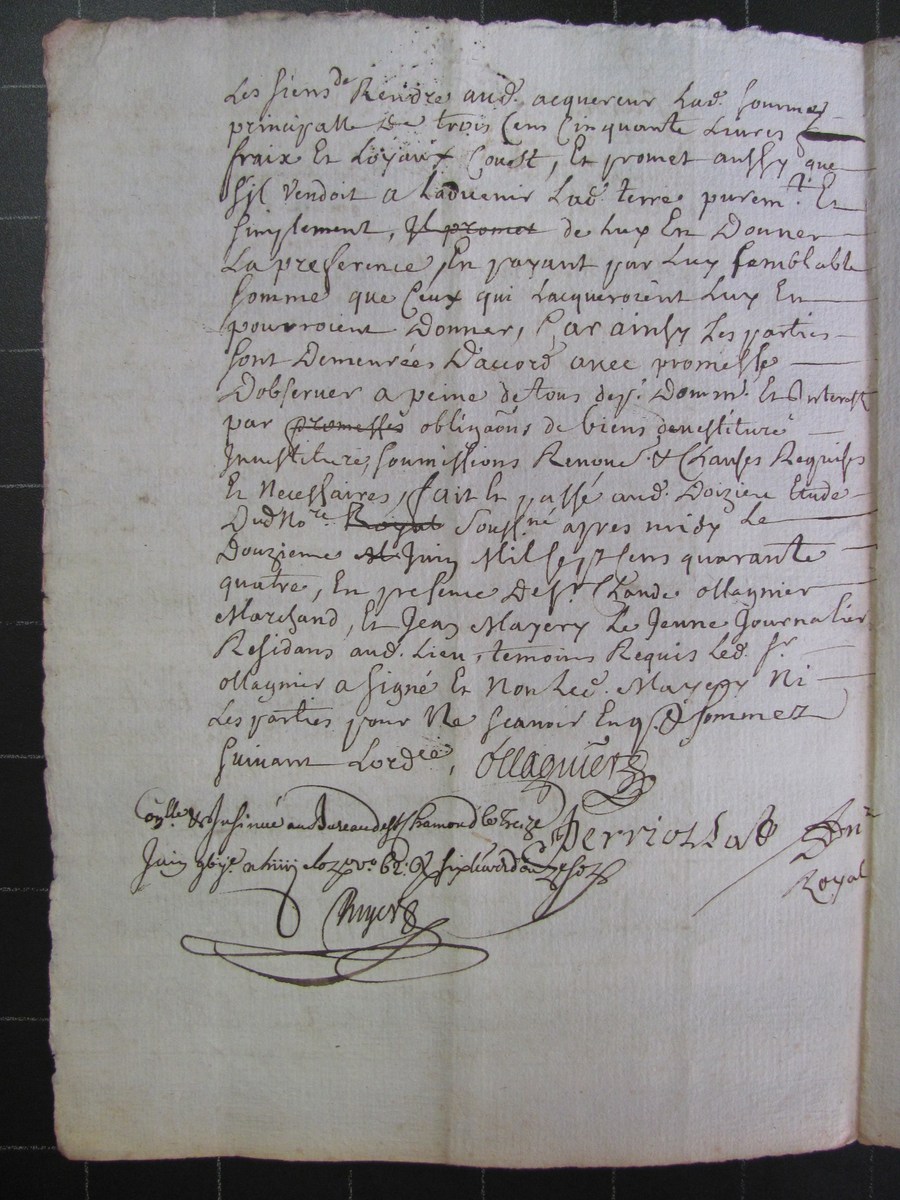 Les siens de Rendre aud. acquereur Lad. somme
principalle de trois Cens Cinquante Livres
fraix Et Loyaux Coust, Et promet aussy que
sil vendoit a Laduenir Lad. terre purem.t Et
simplement, Il promet de Luy En Donner
La preference, En payant par Luy semblable
somme que Ceux qui Lacqueroient Luy En
pouvroient Donner, Car ainsy Les parties
sont Demeurées Daccord avec promesse
Dobserver a peine de tous desp. Domm. Et Interest
par promesses obliga͠ons de biens devestiture
Investiture, soumissions Renon. & Clauses Requises
Et Necessaires, fait Et passé aud. Doizieu Etude
Dud No.re Royal souss.né apres midy Le
Douzieme Juin Mil sept Cens quarante
quatre, En presence de S.r Claude Ollagnier
Marchand, Et Jean Mayery Le Jeune Journalier
Residans aud. Lieu, temoins Requis Led. S.r
Ollagnier a signé Et Non Led. Mayery Ni
Les parties pour Ne scavoir Enq. & sommez
suivant Lord.ce, Ollagnier
Con.lle & Insinué au Bureau de St Chamond le treize
Perriolat
Juin
Royal